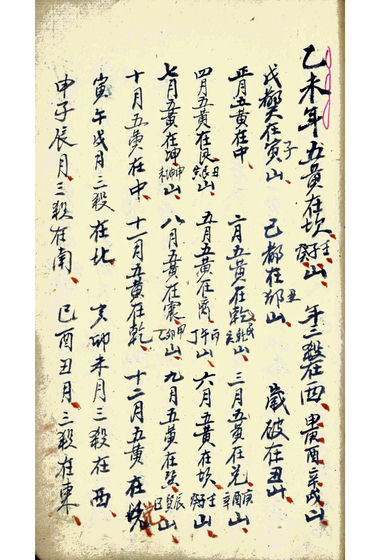 乙未年五黃在坎壬子癸山 年三殺在西甲庚酉辛戌山
戊都天在寅子山 己都在卯丑山 歲破在丑山
正月五黃在中 二月五黃在乾戌亥山 三月五黃在兌庚酉辛山
四月五黃在艮丑寅山 五月五黃在离丙午丁山 六月五黃在坎壬子癸山
七月五黃在坤未申山 八月五黃在震甲卯乙山 九月五黃在巽辰巳山
十月五黃在中 十一月五黃在乾 十二月五黃在
寅午戌月三殺在北 亥卯未月三殺在西
申子辰月三殺在南 巳酉丑月三殺在東